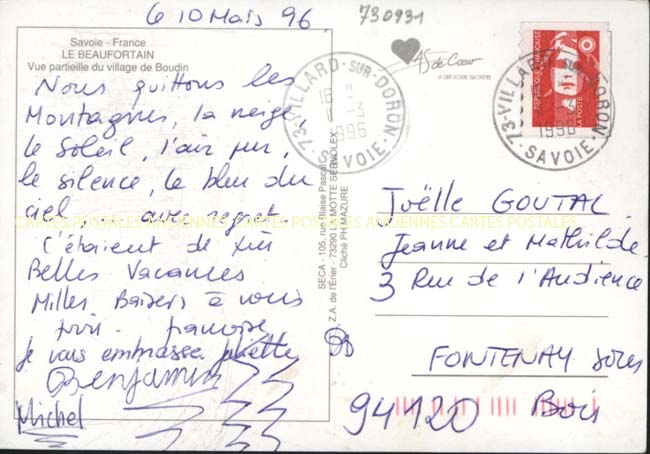 Le 10 Mars 96
730931
Savoie - France
LE BEAUFORTAIN
Vue partielle du village de Boudin
Nous quittons les
Montagnes, la neige,
le soleil, l'air pur,
le silence, le bleu du
ciel, avec regret.
C'étaient de
Belles Vacances
Milles Baisers à vous
trois. françoise
Je vous embrasse Juliette
Benjamin
Michel
As de Cœur
73-VILLARD-SUR-DORON
1996
SAVOIE
REPUBLIQUE FRANÇAISE
LA POSTE
73-VILLARD-SUR-DORON
1996
SAVOIE
SECA - 105, rue Blaise Pascal
Z.A. de l'Erier - 73290 LA MOTTE SERVOLEX
Cliché PH. MAZURE
CARTES POSTALES ANCIENNES CARTES POSTALES
Joëlle GOUTAL
Jeanne et Mathilde
3 Rue de l'Audience
FONTENAY sous
94120 Bois